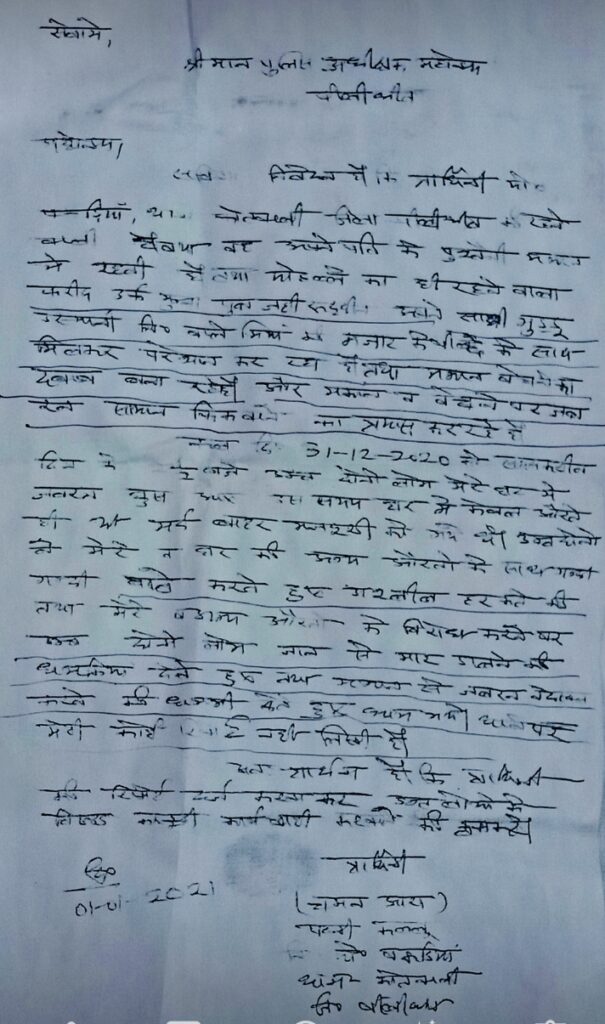 सेवामे,
श्री मान पुलिस अधीक्षक महोदय
पीलीभीत
महोदय,
निवेदन है कि प्रार्थिनी मो०
थाना कोतवाली जिला पीलीभीत की रहने
वाली है तथा वह अपने पति के पुश्तैनी मकान
मे रहती है तथा मोहल्ले का ही रहने वाला
फरीद उर्फ अपने साथी गुड्डू
उस्मानी नि० मजार के पीछे के साथ
मिलकर परेशान कर रहा है तथा मकान बेचने का
दबाव बना रहे है और मकान न बेचने पर
सामान फिकवाने का प्रयास कर रहे है
दि० 31-12-2020 को
दिन के बजे उक्त दोनो लोग मेरे घर मे
जबरन घुस आए उस समय घर मे केवल औरते
ही थी मर्द बाहर मजदूरी को गये थे। उक्त दोनो
ने मेरे व घर की अन्य औरतो के साथ गन्दी
गन्दी बाते करते हुए अश्लील हरकते की
तथा मेरे व अन्य औरतो के विरोध करने पर
उक्त दोनो लोग जान से मार डालने की
धमकिया देते हुए तथा मकान से जबरन बेदखल
करने की धमकी देते हुए भाग गये। थाने पर
मेरी कोई रिपोर्ट नही लिखी है।
अतः प्रार्थना है कि प्रार्थिनी
की रिपोर्ट दर्ज करवा कर उक्त लोगो के
विरुद्ध कानूनी कार्यवाही करवाने की कृपा करे।
प्रार्थिनी
01-01-2021
पत्नी कल्लू
मो०
थाना कोतवाली
जि० पीलीभीत